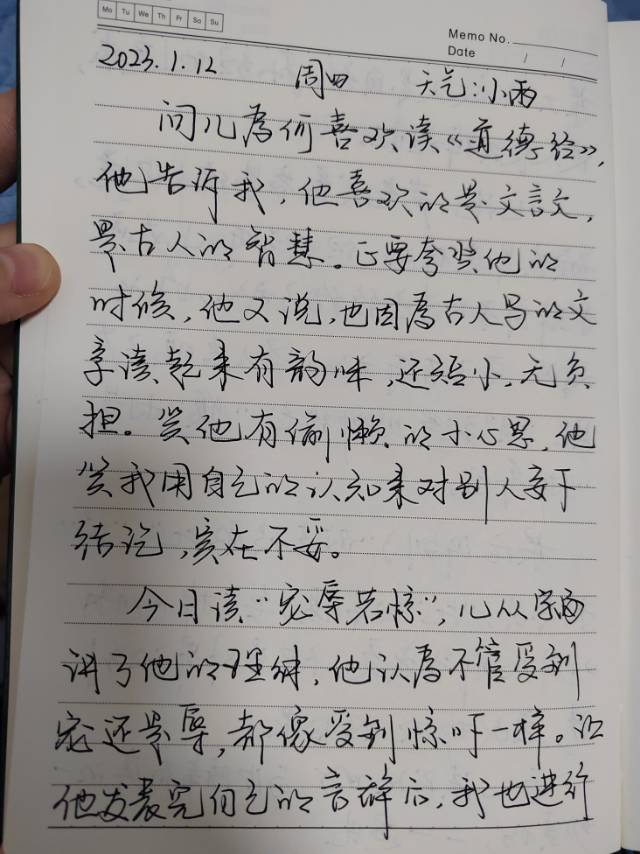 Mo Tu We Th Fr Sa Su
Memo No.
Date / /
2023.1.12 周四 天气:小雨
问儿為何喜欢读《道德经》,
他告诉我,他喜欢的是文言文,
是古人的智慧。正要夸奖他的
时候,他又说,也因為古人写的文
章读起来有韵味,还短小,无负
担。笑他有偷懒的小心思,他
笑我用自己的认知来对别人妄下
结论,实在不妥。
今日读“宠辱若惊”,儿从字面
讲了他的理解,他认為不管受到
宠还是辱,都像受到惊吓一样。让
他发表完自己的言辞后,我也进行